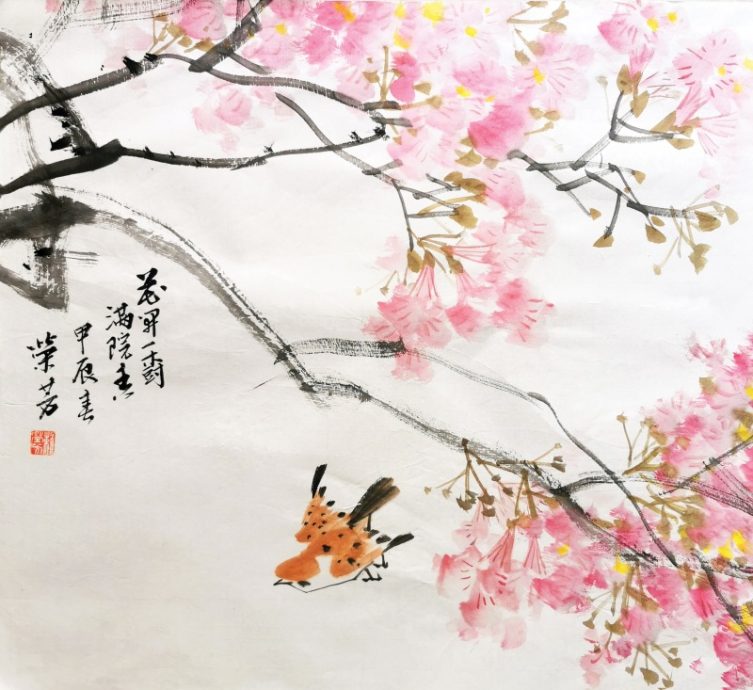 花开一树
满院香
甲辰春
荣芳